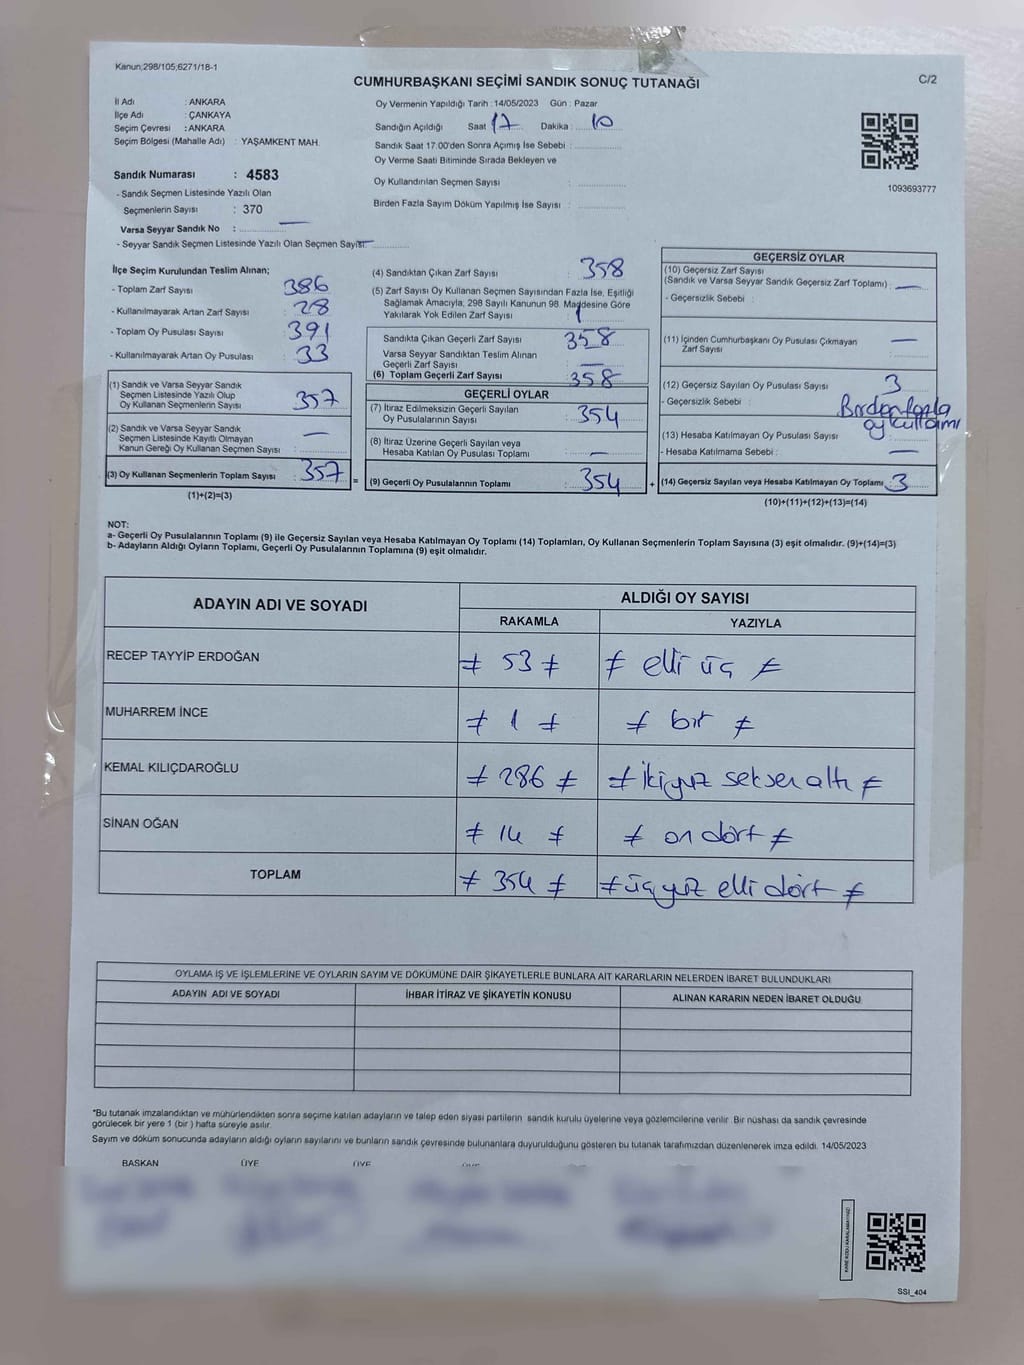 Kanun;298/105,6271/18-1
CUMHURBAŞKANI SEÇİMİ SANDIK SONUÇ TUTANAĞI
C/2
İl Adı : ANKARA
İlçe Adı : ÇANKAYA
Seçim Çevresi : ANKARA
Seçim Bölgesi (Mahalle Adı) : YAŞAMKENT MAH.
Sandık Numarası : 4583
- Sandık Seçmen Listesinde Yazılı Olan
Seçmenlerin Sayısı : 370
Varsa Seyyar Sandık No : —
- Seyyar Sandık Seçmen Listesinde Yazılı Olan Seçmen Sayısı: —
Oy Vermenin Yapıldığı Tarih : 14/05/2023 Gün : Pazar
Sandığın Açıldığı Saat 17 Dakika : 10
Sandık Saat 17:00'den Sonra Açımış İse Sebebi :
Oy Verme Saati Bitiminde Sırada Bekleyen ve
Oy Kullandırılan Seçmen Sayısı :
Birden Fazla Sayım Döküm Yapılmış İse Sayısı :
1093693777
İlçe Seçim Kurulundan Teslim Alınan;
- Toplam Zarf Sayısı : 386
- Kullanılmayarak Artan Zarf Sayısı : 28
- Toplam Oy Pusulası Sayısı : 391
- Kullanılmayarak Artan Oy Pusulası : 33
(1) Sandık ve Varsa Seyyar Sandık
Seçmen Listesinde Yazılı Olup
Oy Kullanan Seçmenlerin Sayısı : 357
(2) Sandık ve Varsa Seyyar Sandık
Seçmen Listesinde Kayıtlı Olmayan
Kanun Gereği Oy Kullanan Seçmen Sayısı : —
(3) Oy Kullanan Seçmenlerin Toplam Sayısı : 357
(1)+(2)=(3)
(4) Sandıktan Çıkan Zarf Sayısı : 358
(5) Zarf Sayısı Oy Kullanan Seçmen Sayısından Fazla İse, Eşitliği
Sağlamak Amacıyla, 298 Sayılı Kanunun 98. Maddesine Göre
Yakılarak Yok Edilen Zarf Sayısı : 1
Sandıkta Çıkan Geçerli Zarf Sayısı : 358
Varsa Seyyar Sandıktan Teslim Alınan
Geçerli Zarf Sayısı : —
(6) Toplam Geçerli Zarf Sayısı : 358
GEÇERLİ OYLAR
(7) İtiraz Edilmeksizin Geçerli Sayılan
Oy Pusulalarının Sayısı : 354
(8) İtiraz Üzerine Geçerli Sayılan veya
Hesaba Katılan Oy Pusulası Toplamı : —
= (9) Geçerli Oy Pusulalarının Toplamı : 354
GEÇERSİZ OYLAR
(10) Geçersiz Zarf Sayısı
(Sandık ve Varsa Seyyar Sandık Geçersiz Zarf Toplamı) : —
- Geçersizlik Sebebi :
(11) İçinden Cumhurbaşkanı Oy Pusulası Çıkmayan
Zarf Sayısı : —
(12) Geçersiz Sayılan Oy Pusulası Sayısı : 3
- Geçersizlik Sebebi : Birden fazla
oy kullanımı
(13) Hesaba Katılmayan Oy Pusulası Sayısı :
- Hesaba Katılmama Sebebi : —
+ (14) Geçersiz Sayılan veya Hesaba Katılmayan Oy Toplamı : 3
(10)+(11)+(12)+(13)=(14)
NOT:
a- Geçerli Oy Pusulalarının Toplamı (9) ile Geçersiz Sayılan veya Hesaba Katılmayan Oy Toplamı (14) Toplamları, Oy Kullanan Seçmenlerin Toplam Sayısına (3) eşit olmalıdır. (9)+(14)=(3)
b- Adayların Aldığı Oyların Toplamı, Geçerli Oy Pusulalarının Toplamına (9) eşit olmalıdır.
ADAYIN ADI VE SOYADI
ALDIĞI OY SAYISI
RAKAMLA YAZIYLA
RECEP TAYYİP ERDOĞAN ≠ 53 ≠ ≠ elli üç ≠
MUHARREM İNCE ≠ 1 ≠ ≠ bir ≠
KEMAL KILIÇDAROĞLU ≠ 286 ≠ ≠ ikiyüz seksen altı ≠
SİNAN OĞAN ≠ 14 ≠ ≠ on dört ≠
TOPLAM ≠ 354 ≠ ≠ üçyüz elli dört ≠
OYLAMA İŞ VE İŞLEMLERİNE VE OYLARIN SAYIM VE DÖKÜMÜNE DAİR ŞİKAYETLERLE BUNLARA AİT KARARLARIN NELERDEN İBARET BULUNDUKLARI
ADAYIN ADI VE SOYADI İHBAR İTİRAZ VE ŞİKAYETİN KONUSU ALINAN KARARIN NEDEN İBARET OLDUĞU
*Bu tutanak imzalandıktan ve mühürlendikten sonra seçime katılan adayların ve talep eden siyasi partilerin sandık kurulu üyelerine veya gözlemcilerine verilir. Bir nüshası da sandık çevresinde
görülecek bir yere 1 (bir ) hafta süreyle asılır.
Sayım ve döküm sonucunda adayların aldığı oyların sayılarını ve bunların sandık çevresinde bulunanlara duyurulduğunu gösteren bu tutanak tarafımızdan düzenlenerek imza edildi. 14/05/2023
BAŞKAN ÜYE ÜYE
KARE KODU KARALAMAYINIZ!
SSI_404